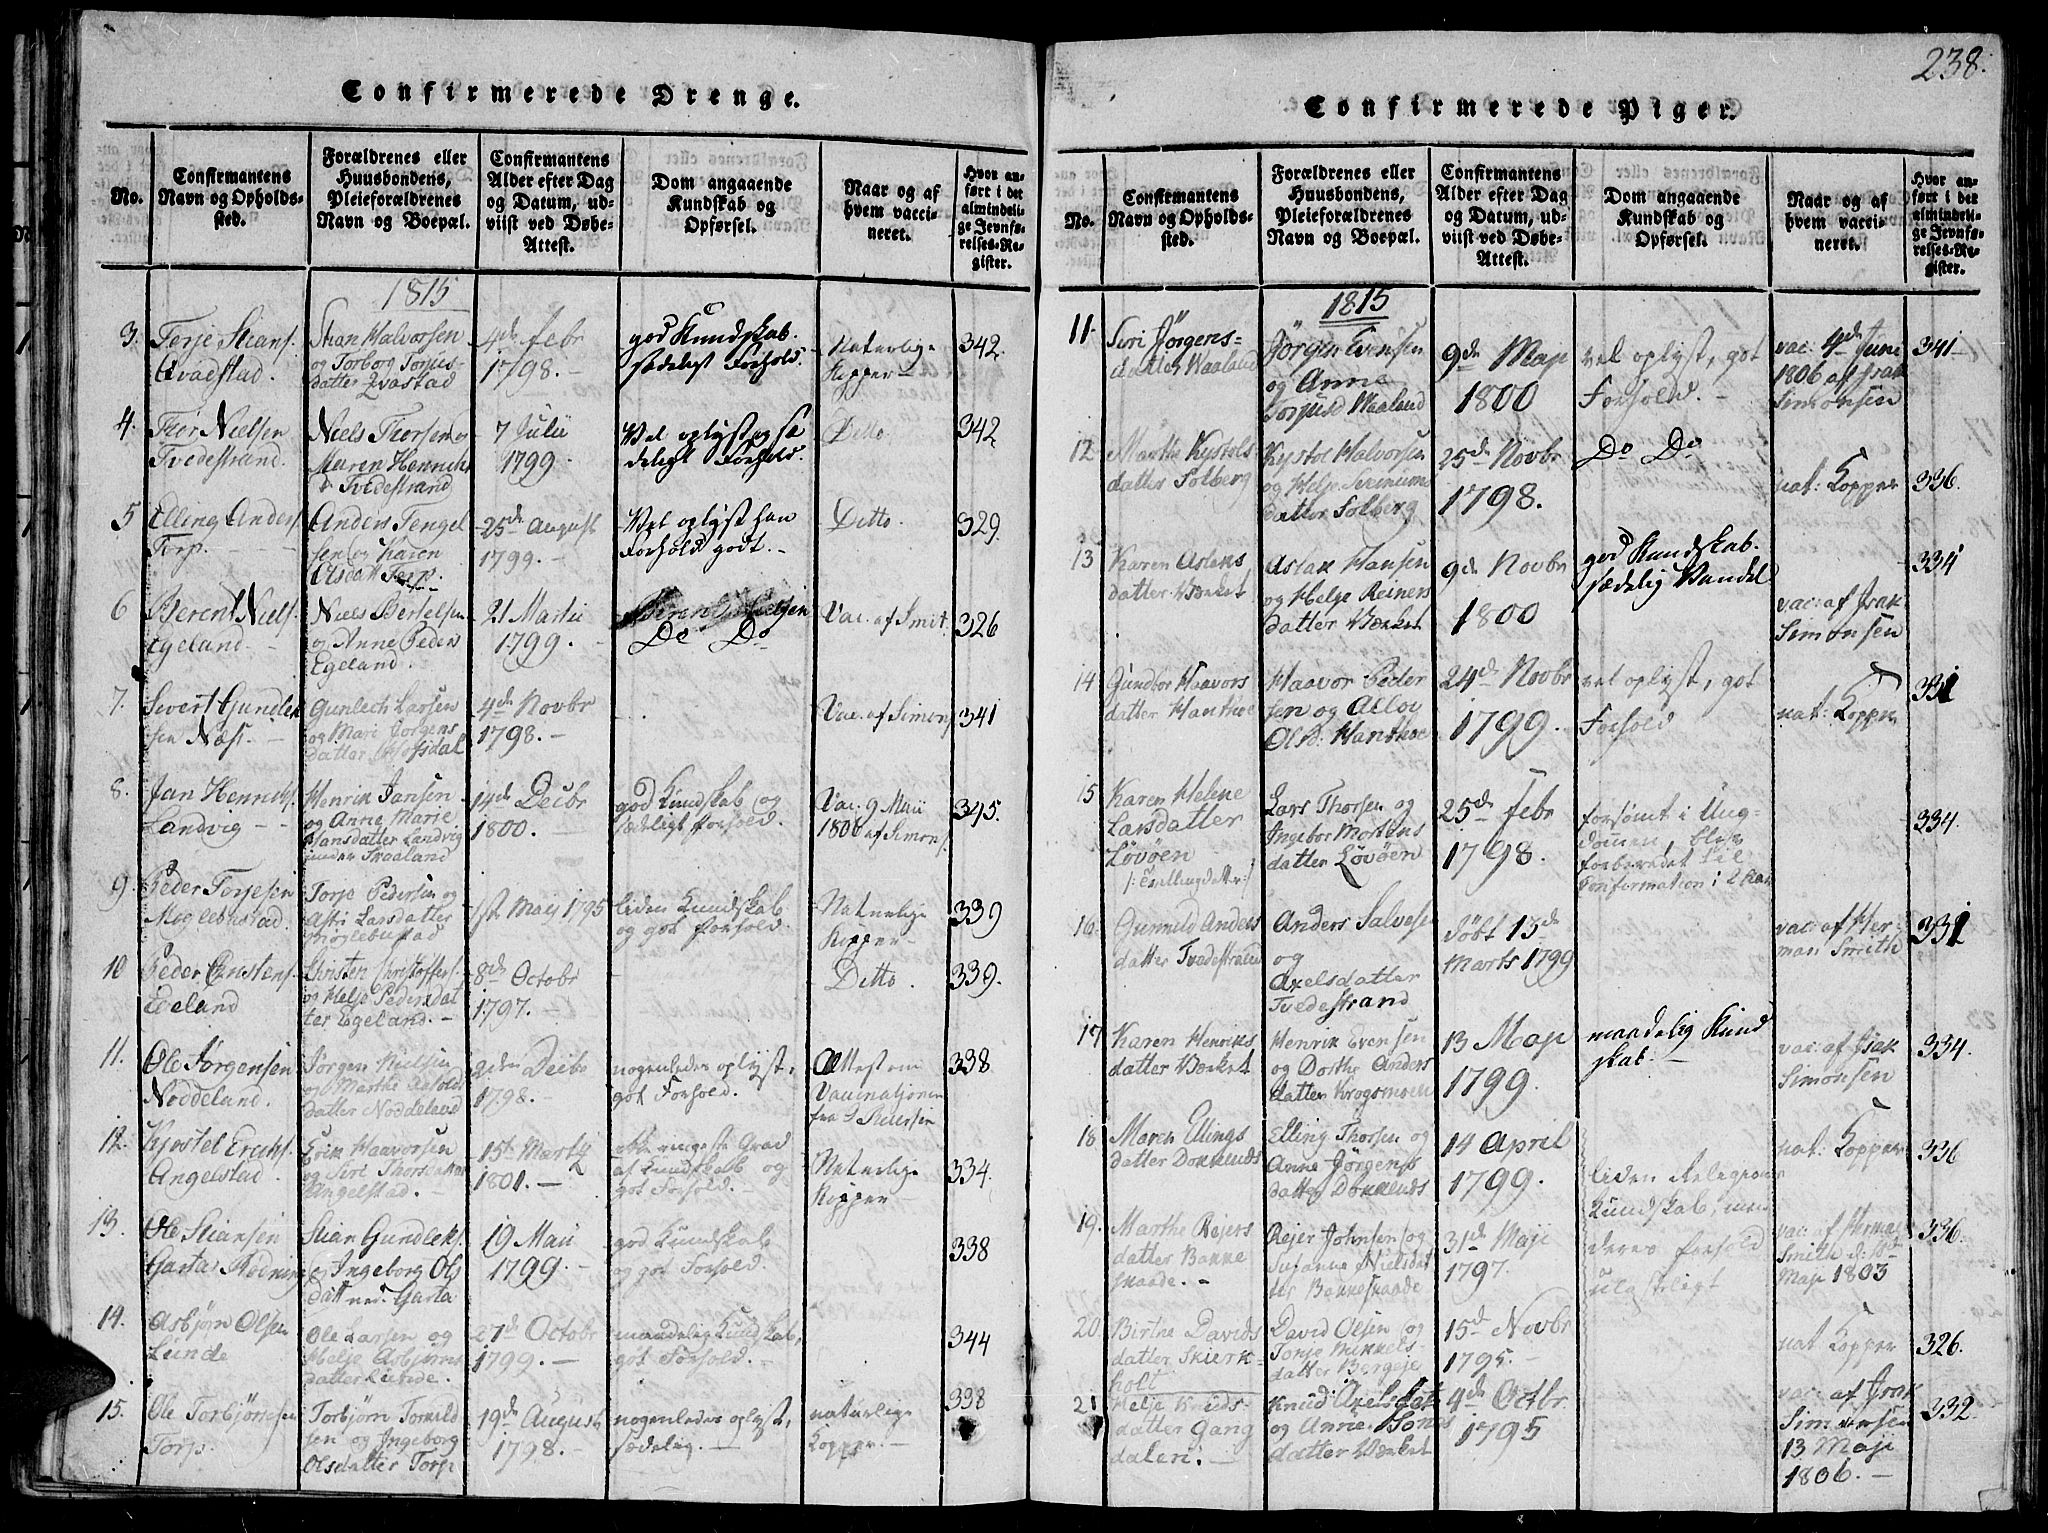 Confirmerede Drenge.
No.
Confirmantens
Navn og Opholds-
sted.
Forældrenes eller
Huusbondens,
Pleieforældrenes
Navn og Boepæl.
Confirmantens
Alder efter Dag
og Datum, ud-
viist ved Døbe-
Attest.
Dom angaaende
Kundskab og
Opførsel.
Naar og af
hvem vacci-
neret.
Hvor an-
ført i det
almindeli-
ge Jevnfø-
relses-Re-
gister.
1815
3.
Terje Stians.
Qvaestad.
Stian Halvorsen
og Torborg Torjus-
datter Qvastad
4de Febr
1798.
god Kundskab.
sædeligt Forhold.
Naturlige
Kopper
342.
4.
Thor Nielsen
Tvedestrand.
Niels Thorsen og
Maren Henriks
Tvedestrand
7 Julii
1799.
Vel oplyst og sæ
deligt Forhold.
Ditto
342
5
Elling Anders.
Torp.
Anders Tengel
sen og Karen
Olsdatt Torp.
25de August
1799.
Vel oplyst han
Forhold godt.
Ditto.
329.
6
Berent Niels.
Egeland.
Niels Bertelsen
og Anne Peders
Egeland.
21 Martii
1799.
Do Do
Vac. af Smit.
326
7.
Sivert Gundlek
sen Næs.
Gunlech Larsen
og Mari Jörgens
datter
4de Novbr
1798.
Vac. af Simons.
341
8.
Jan Henriks.
Landvig
Henrik Jansen
og Anne Marie
Hansdatter Landvig
under Fraaland
14de Decbr
1800.
god Kundskab og
sædeligt Forhold.
Vac. 9 Maii
1806 af Simons.
345.
9.
Peder Torjesen
Moglebustad.
Torje Pedersen og
Astri Larsdatter
Moglebustad
1ste Maij 1795
liden Kundskab
og got Forhold.
Naturlige
Kopper
339
10
Peder Cristens.
Egeland
Christen Christoffers.
og Helje Pedersdat
ter Egeland.
8de Octobr
1797.
Ditto.
339.
11.
Ole Jörgensen
Noddeland.
Jörgen Nielsen
og Marthe
datter Noddeland
9den Decbr
1798.
nogenledes oplyst,
got Forhold.
Attest om
Vaccinationen
fra
338
12.
Kjostel Eriks.
Angelstad.
Erik Haavorsen
og Siri Thors
Angelstad.
15de Marty
1801.
ikke ringeste Grad
af Kundskab og
got Forhold.
Naturlige
Kopper
334.
13.
Ole Stiansen
Garta
Stian Gundleks.
og Ingeborg Ols
datt ned. Garta
19 Maii
1799.
god Kundskab
og got Forhold.
338
14.
Asbjørn Olsen
Lunde
Ole Larsen og
Helje Asbjørns
datter Lunde.
27de Octobr
1799.
maadelig Kundskab,
got Forhold.
344
15.
Ole Torbjörnsen
Torp.
Torbjörn Tomild
sen og Ingeborg
Olsdatter Torp
19de August
1798.
nogenledes oplyst,
sædelig.
naturlige
Kopper.
338
238.
Confirmerede Piger.
No.
Confirmantens
Navn og Opholds-
sted.
Forældrenes eller
Huusbondens,
Pleieforældrenes
Navn og Boepæl.
Confirmantens
Alder efter Dag
og Datum, ud-
viist ved Døbe-
Attest.
Dom angaaende
Kundskab og
Opførsel.
Naar og af
hvem vacci-
neret.
Hvor an-
ført i det
almindeli-
ge Jevnfø-
relses-Re-
gister.
1815
11.
Siri Jörgens-
datter Waaland
Jörgen Evensen
og Anne
Torjusd Waaland
9de Maji
1800
vel oplyst, got
Forhold.
vac. 4de Juni
1806 af Isak
Simonsen
341
12.
Marthe Kystols
datter Solberg
Kystol Halvorsen
og Helje
datter Solberg
25de Novbr
1798.
Do Do
nat: Kopper
336.
13
Karen Aslaks
datter Værket
Aslak Hansen
og Helje Reiners
datter Værket
9de Novbr
1800
god Kundskab.
sædelig Vandel
vac: af Isak
Simonsen
334
14
Gundbor Haavors
datter Hanthoe
Haavor Peder
sen og Alloy
Olsd. Hanthoe
24de Novbr
1799.
vel oplyst, got
Forhold
nat: Kopper
331
15
Karen Helene
Larsdatter
Lövöen
/: Tvillingdatter :/
Lars Thorsen og
Ingebor Mortens
datter Lövöen
25de Febr
1798.
forsømt i Ung-
dommen, blev
forberedet til
Confirmation i 2 Aar
334.
16.
Gunnild Anders
datter Tvedestrand
Anders Salvesen
og
Axelsdatter
Tvedestrand
Döbt 13de
Marts 1799
vac: af Her-
man Smith
331
17
Karen Henriks
datter Værket
Henrik Evensen
og Dorthe Anders
datter Krogsmoen
13 Maji
1799.
maadelig Kund
skab.
vac: af Isak
Simonsen
334.
18
Maren Ellings
datter Dokkends
Elling Thorsen og
Anne Jörgens
datter Dokkends
14 April
1799.
liden Religions
Kundskab, men
deres Forhold
ulasteligt
nat: Kopper
336
19.
Marthe Rejers
datter Bakke
skaade.
Rejer Johnsen og
Susanne Nielsdat
ter Bakkeskaade
31de Maji
1797.
vac: af Herman
Smith d: 18de
Maji 1803
336.
20.
Birthe Davids
datter Skierk-
holt
David Olsen og
Tonje Mikkels-
datter Bergeje
15de Novbr
1795.
nat Kopper
326.
21
Helje Knuds-
datter Gang
dalen.
Knud Axelsen
og Anne Tones
datter Værket
4de Octbr
1795
vac: af Isak
Simonsen
13 Maji
1806.
332.